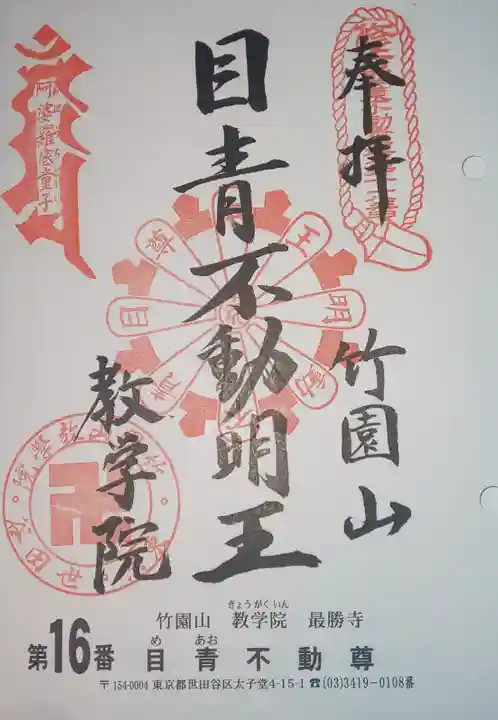 奉拝
竹園山
目青不動明王
教学院
阿婆羅底童子
きょうがくいん
竹園山 教学院 最勝寺
め あお
第16番 目青不動尊
〒154-0004 東京都世田谷区太子堂4-15-1 ☎(03)3419-0108番